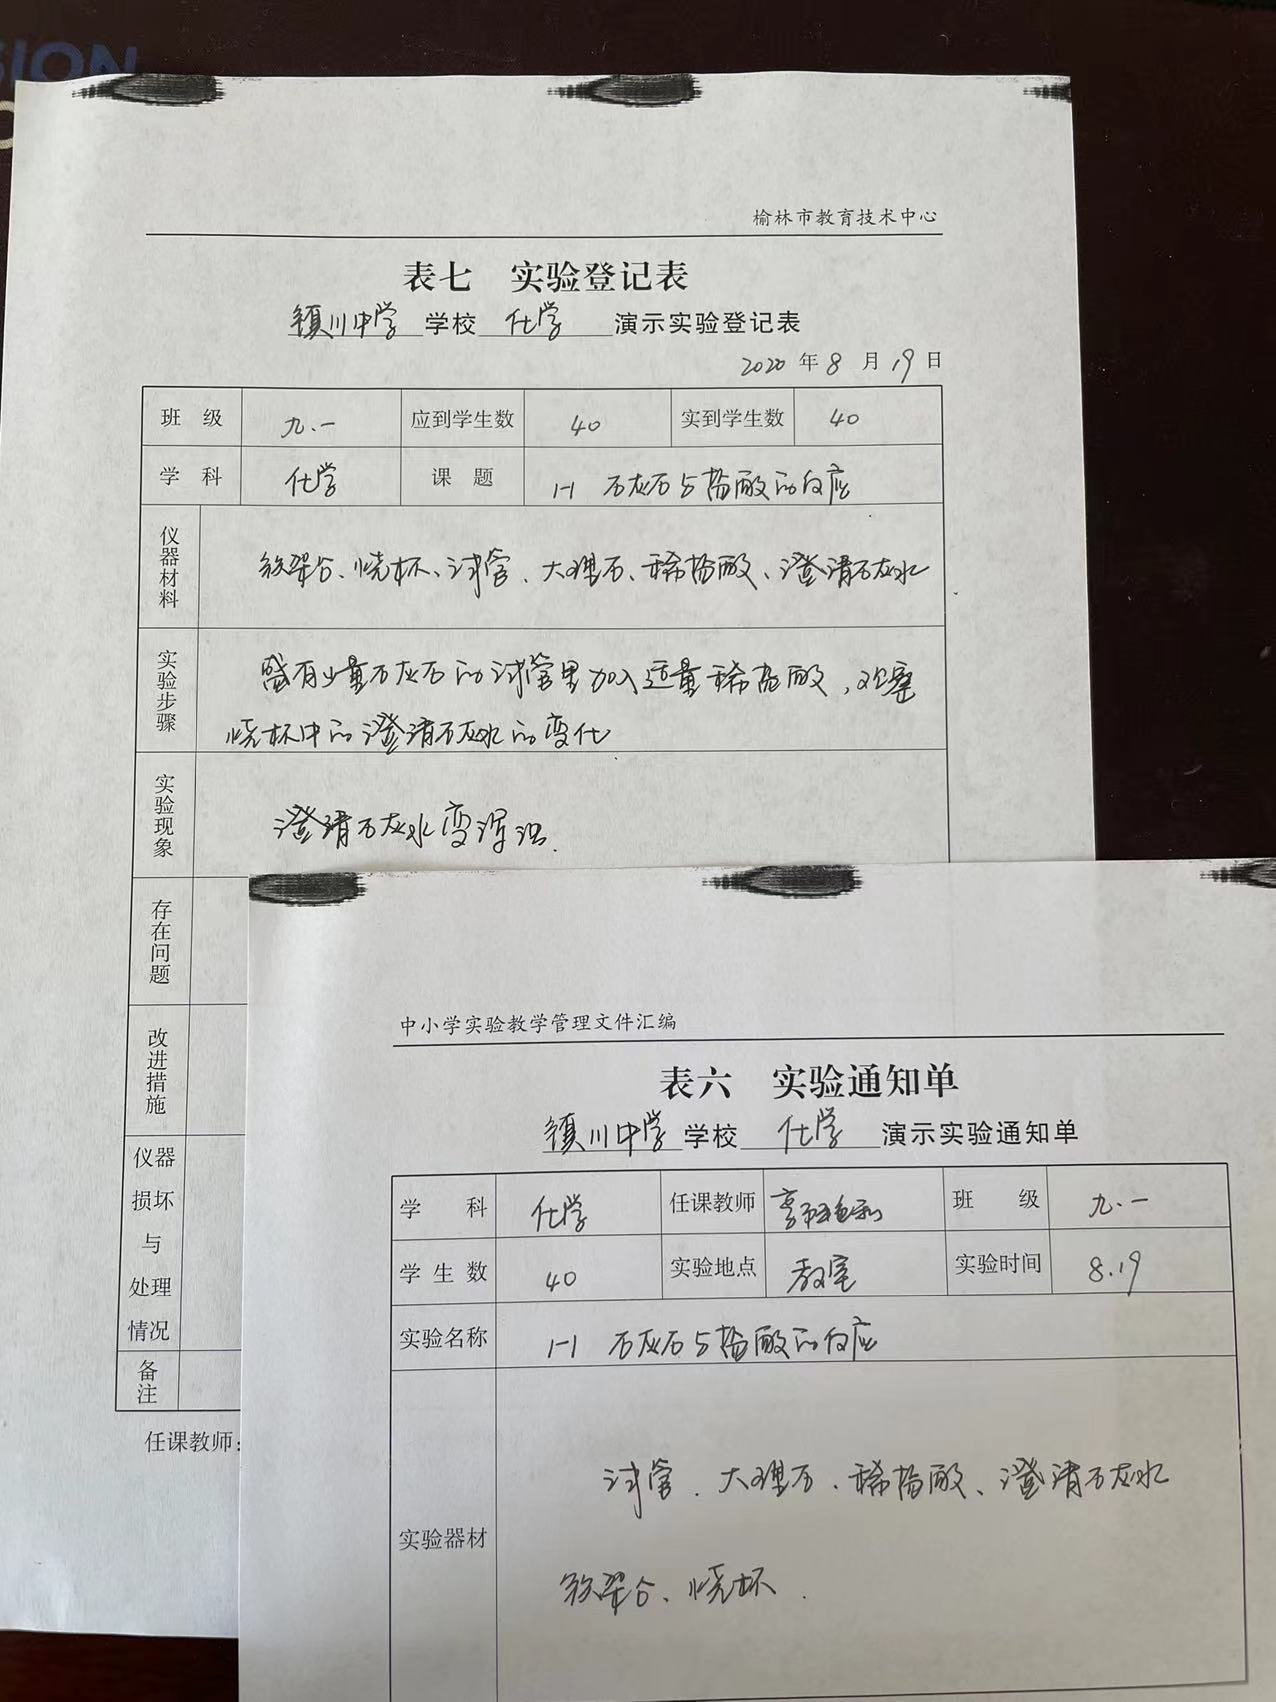 SION
榆林市教育技术中心
表七 实验登记表
镇川中学 学校 化学 演示实验登记表
2020 年 8 月 19 日
班 级 九.一 应到学生数 40 实到学生数 40
学 科 化学 课 题 1-1 石灰石与盐酸的反应
仪器材料 铁架台、烧杯、试管、大理石、稀盐酸、澄清石灰水
实验步骤 盛有少量石灰石的试管里加入适量稀盐酸,观察
烧杯中的澄清石灰水的变化
实验现象 澄清石灰水变浑浊.
存在问题
改进措施
仪器
损坏
与
处理
情况
备注
任课教师:
中小学实验教学管理文件汇编
表六 实验通知单
镇川中学 学校 化学 演示实验通知单
学 科 化学 任课教师 班 级 九.一
学 生 数 40 实验地点 教室 实验时间 8.19
实验名称 1-1 石灰石与盐酸的反应
实验器材 试管、大理石、稀盐酸、澄清石灰水
铁架台、烧杯.